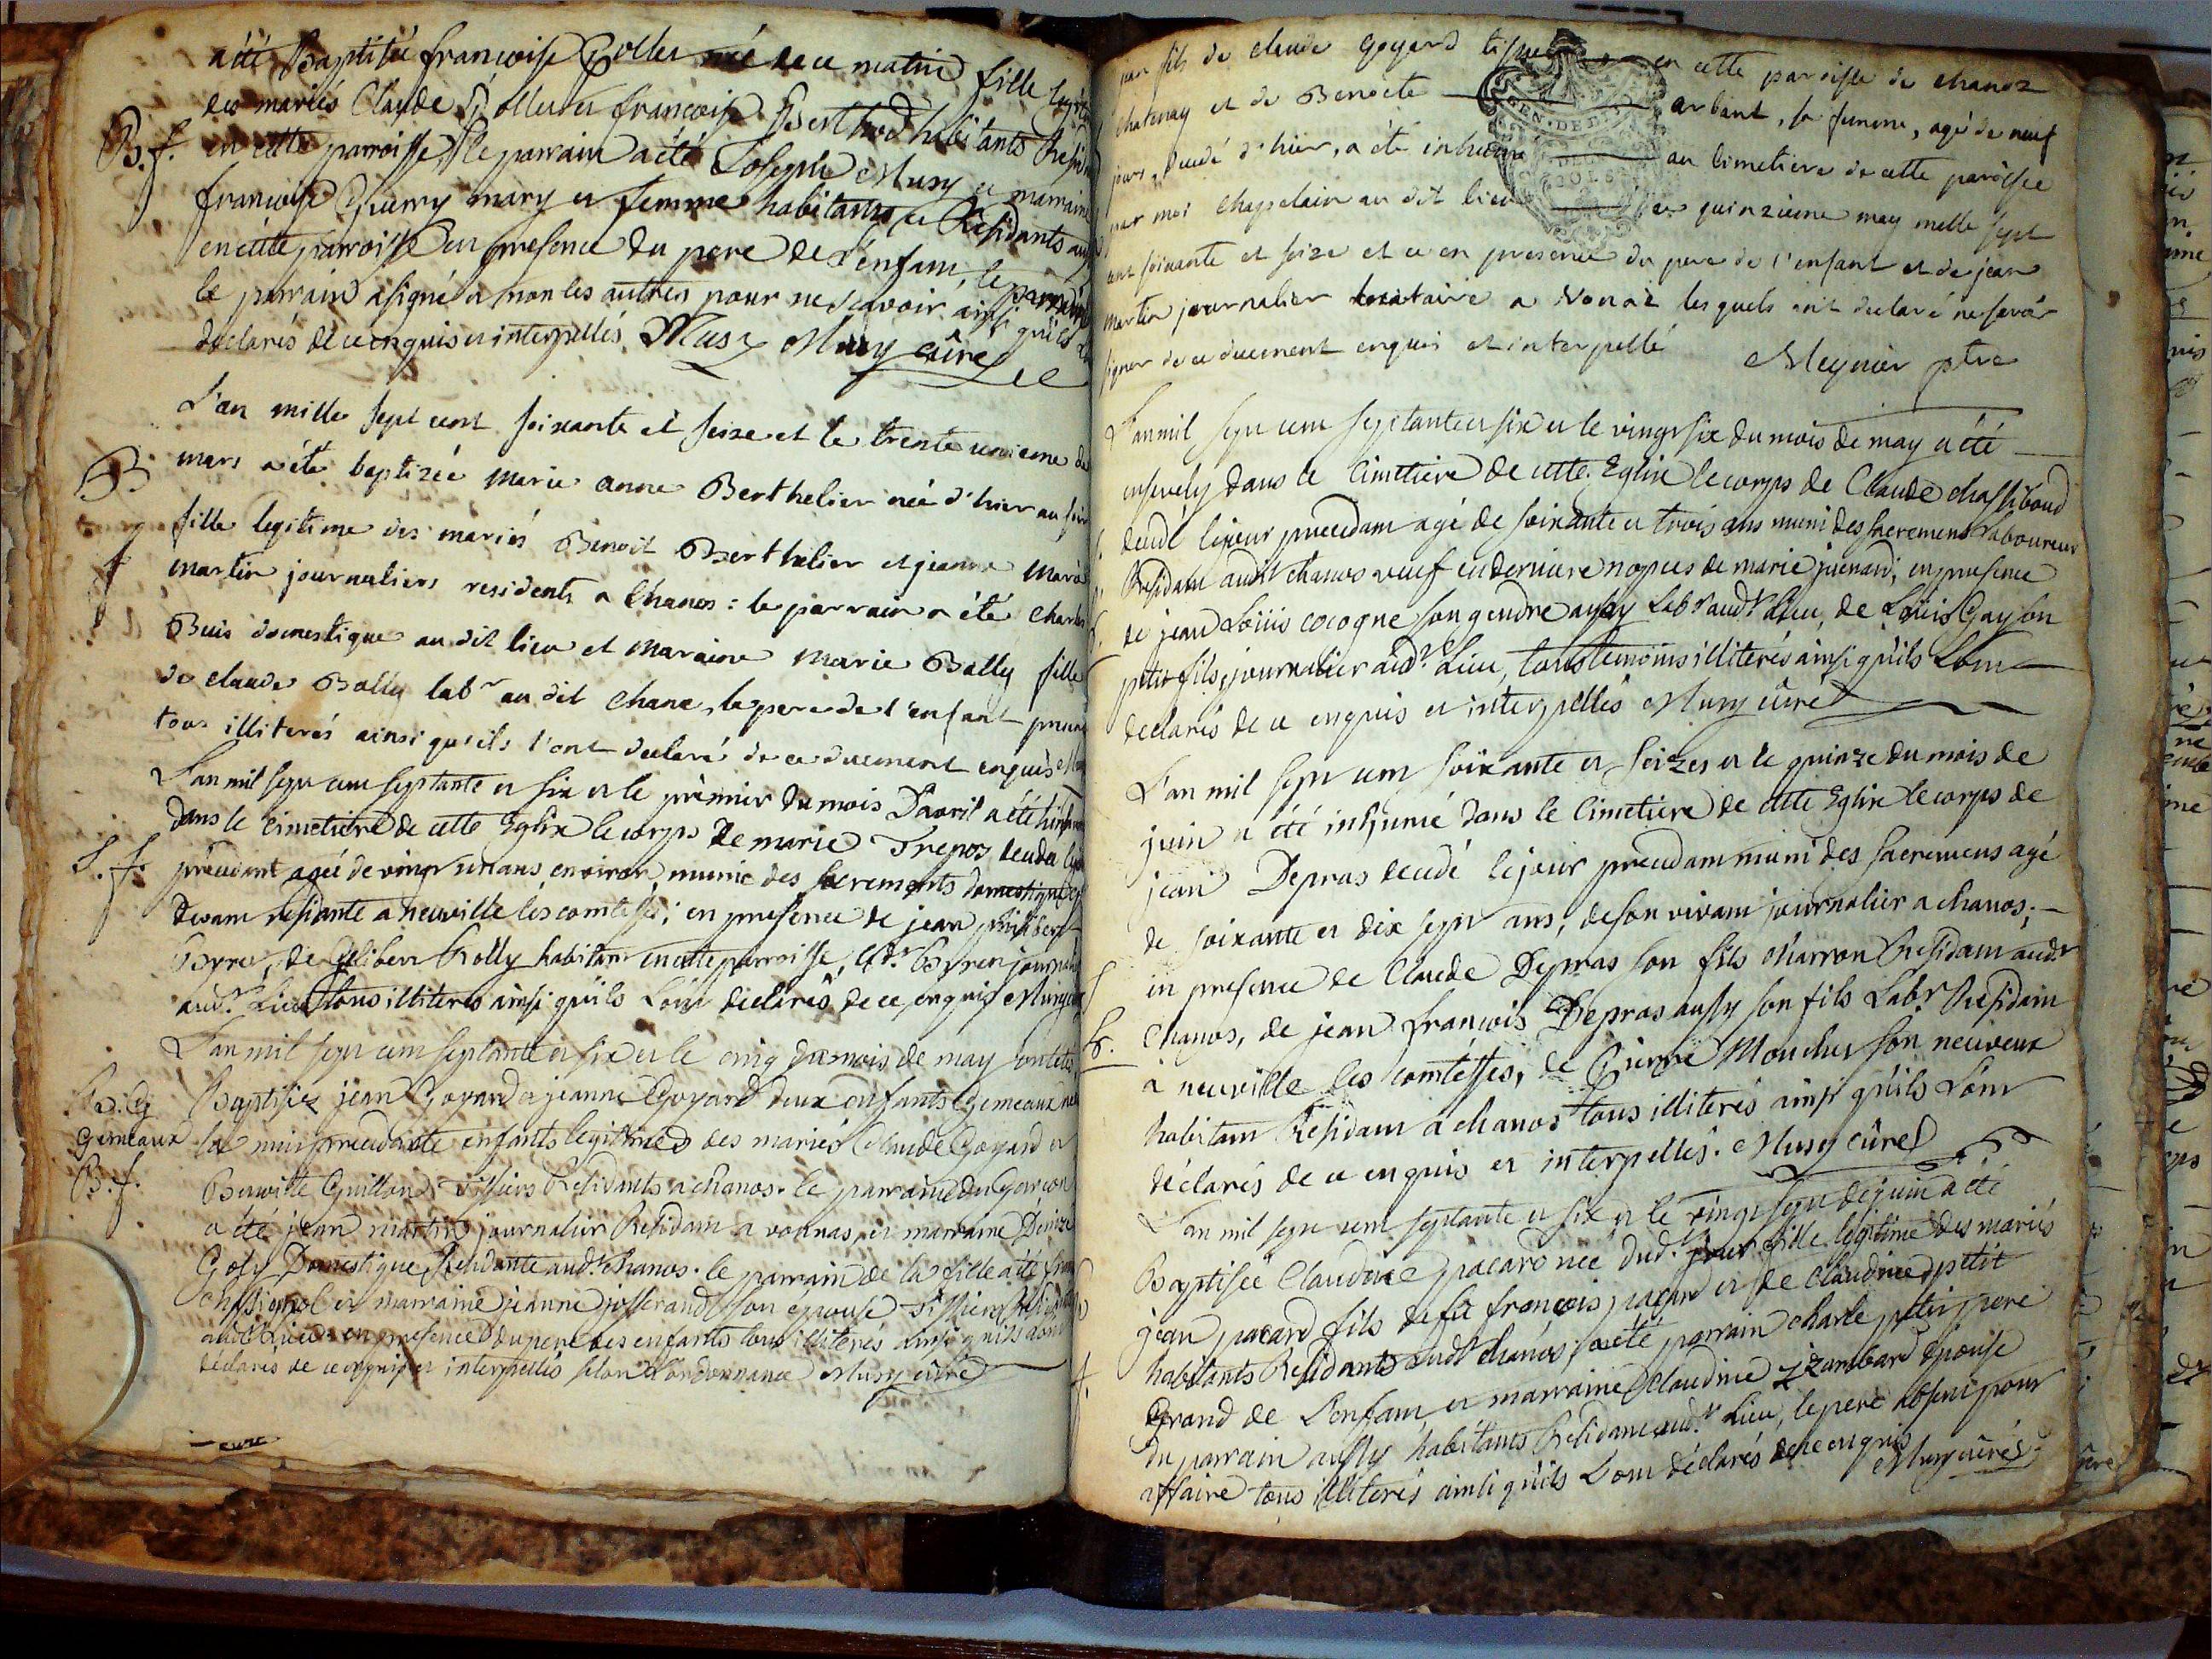 a été Baptisée francoise Coller née de ce matin fille
des mariés Claude Coller et francoise Berthod habitants
B.f. en cette parroisse, le parrain a été Joseph Musy et marraine
francoise Guerry mary et femme habitants et Residants
en cette parroisse en presence du pere de L'enfant,
le parrain a signé et non les autres pour ne scavoir ainsi qu'ils
declarés de ce enquis et interpellés. Musy Musy curé
L'an mille sept cent soixante et seize et le trente unieme de
B mars a été baptizée marie anne Berthelier née d'hier au soir
f fille legitime des mariés Benoit Berthelier et jeanne marie
martin journaliers residents a Chanos : le parrain a été Charles
Buis domestique au dit lieu et maraine marie Bally fille
de claude Bally labr au dit Chanos, le pere de l'enfant
tous illiterés ainsi qu'ils l'ont declaré de ce duement enquis
L'an mil sept cent septante et six et le premier du mois D'avril a été
dans le Cimetiere de cette Eglise le corps de marie Trepos decedée
S.f. precedent agée de vingt un ans environ munie des sacrements domestique
residante a neuville les comtesses; en presence de jean
de Rolly habitant en cette parroisse,
audt Lieu tous illiterés ainsi qu'ils Lont déclarés de ce enquis
L'an mil sept cent septante et six et le cinq du mois de may ont étés
B.f.G Baptisés jean Goyard et jeanne Goyard deux enfants Gemeaux nés
Gemeaux la nuit precedente enfants legitimes des mariés Claude Goyard et
B.f. Benoite Guillon Residants a Chanos. le parrain du garcon
a été jean martin journalier Residant a vonnas, et marraine Denise
Goty Domestique Residante audt Chanos. le parrain de la fille a été
et marraine jeanne josserand son épouse
audt Lieu en presence du pere des enfants tous illiterés ainsi qu'ils Lont
declarés de ce enquis et interpellés selon L'ordonnance Musy curé
jean fils de claude Goyard en cette paroisse de chanoz
chatenay et de Benoite arbant, sa femme, agé de neuf
jours, decedé d'hier, a été inhumé au cimetiere de cette paroisse
par moi chapelain au dit lieu quinzieme may mille sept
cent soixante et seize et ce en presence du pere de l'enfant et de jean
martin journalier locataire a Vonaz lesquels ont declaré ne savoir
signer de ce duement enquis et interpellé Meynier ptre
L'an mil sept cent septante et six et le vingt six du mois de may a été
ensevely dans le Cimetiere de cette Eglise le corps de Claude chassiboud
decedé le jour precedant agé de soixante et trois ans muni des sacremens Laboureur
Residant audt chanos veuf en derniere nopces de marie juenard, en presence
de jean Loüis cocogne son gendre aussy Labr audt Lieu, de Loüis Gayson
petit fils, journalier audt Lieu, tous temoins illiterés ainsi qu'ils Lont
declarés de ce enquis et interpellés Musy curé
L'an mil sept cent soixante et seizes et le quinze du mois de
juin a été inhumé dans le Cimetiere de cette Eglise le corps de
jean Depras decedé le jour precedant muni des sacremens agé
de soixante et dix sept ans, de son vivant journalier a chanos;
en presence de Claude Depras son fils charron Residant audt
chanos, de jean francois Depras aussy son fils Labr Residant
à neuville les comtesses, de Pierre Monchus son neuveux
habitant Residant a chanos tous illiterés ainsi qu'ils Lont
déclarés de ce enquis et interpellés. Musy curé
L'an mil sept cent septante et six et le vingt sept de juin a été
Baptisée Claudine pacard née dudt jour fille legitime des mariés
jean pacard fils de fû francois pacard et de Claudine petit
habitants Residants audt chanos, a été parrain charle petit pere
Grand de L'enfant, et marraine Claudine zizambard épouse
du parrain aussy habitants Residant audt Lieu, le pere absent pour
affaire tous illiterés ainsi qu'ils Lont déclarés de ce enquis
Musy curé